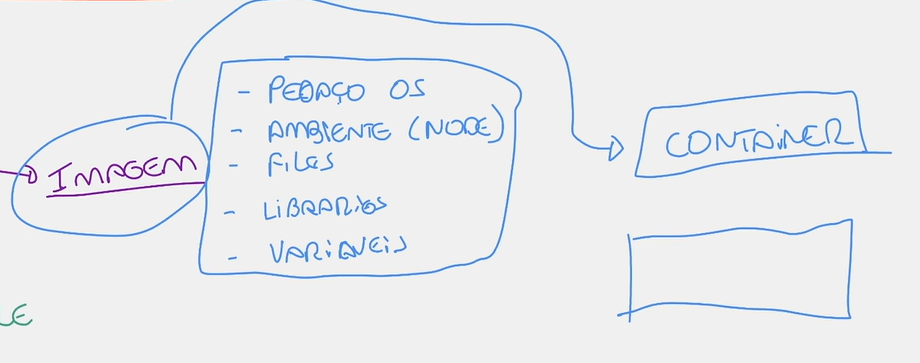 IMAGEM
- PEDAÇO OS
- AMBIENTE (NODE)
- FILES
- LIBRARIES
- VARIÁVEIS
CONTAINER
LE